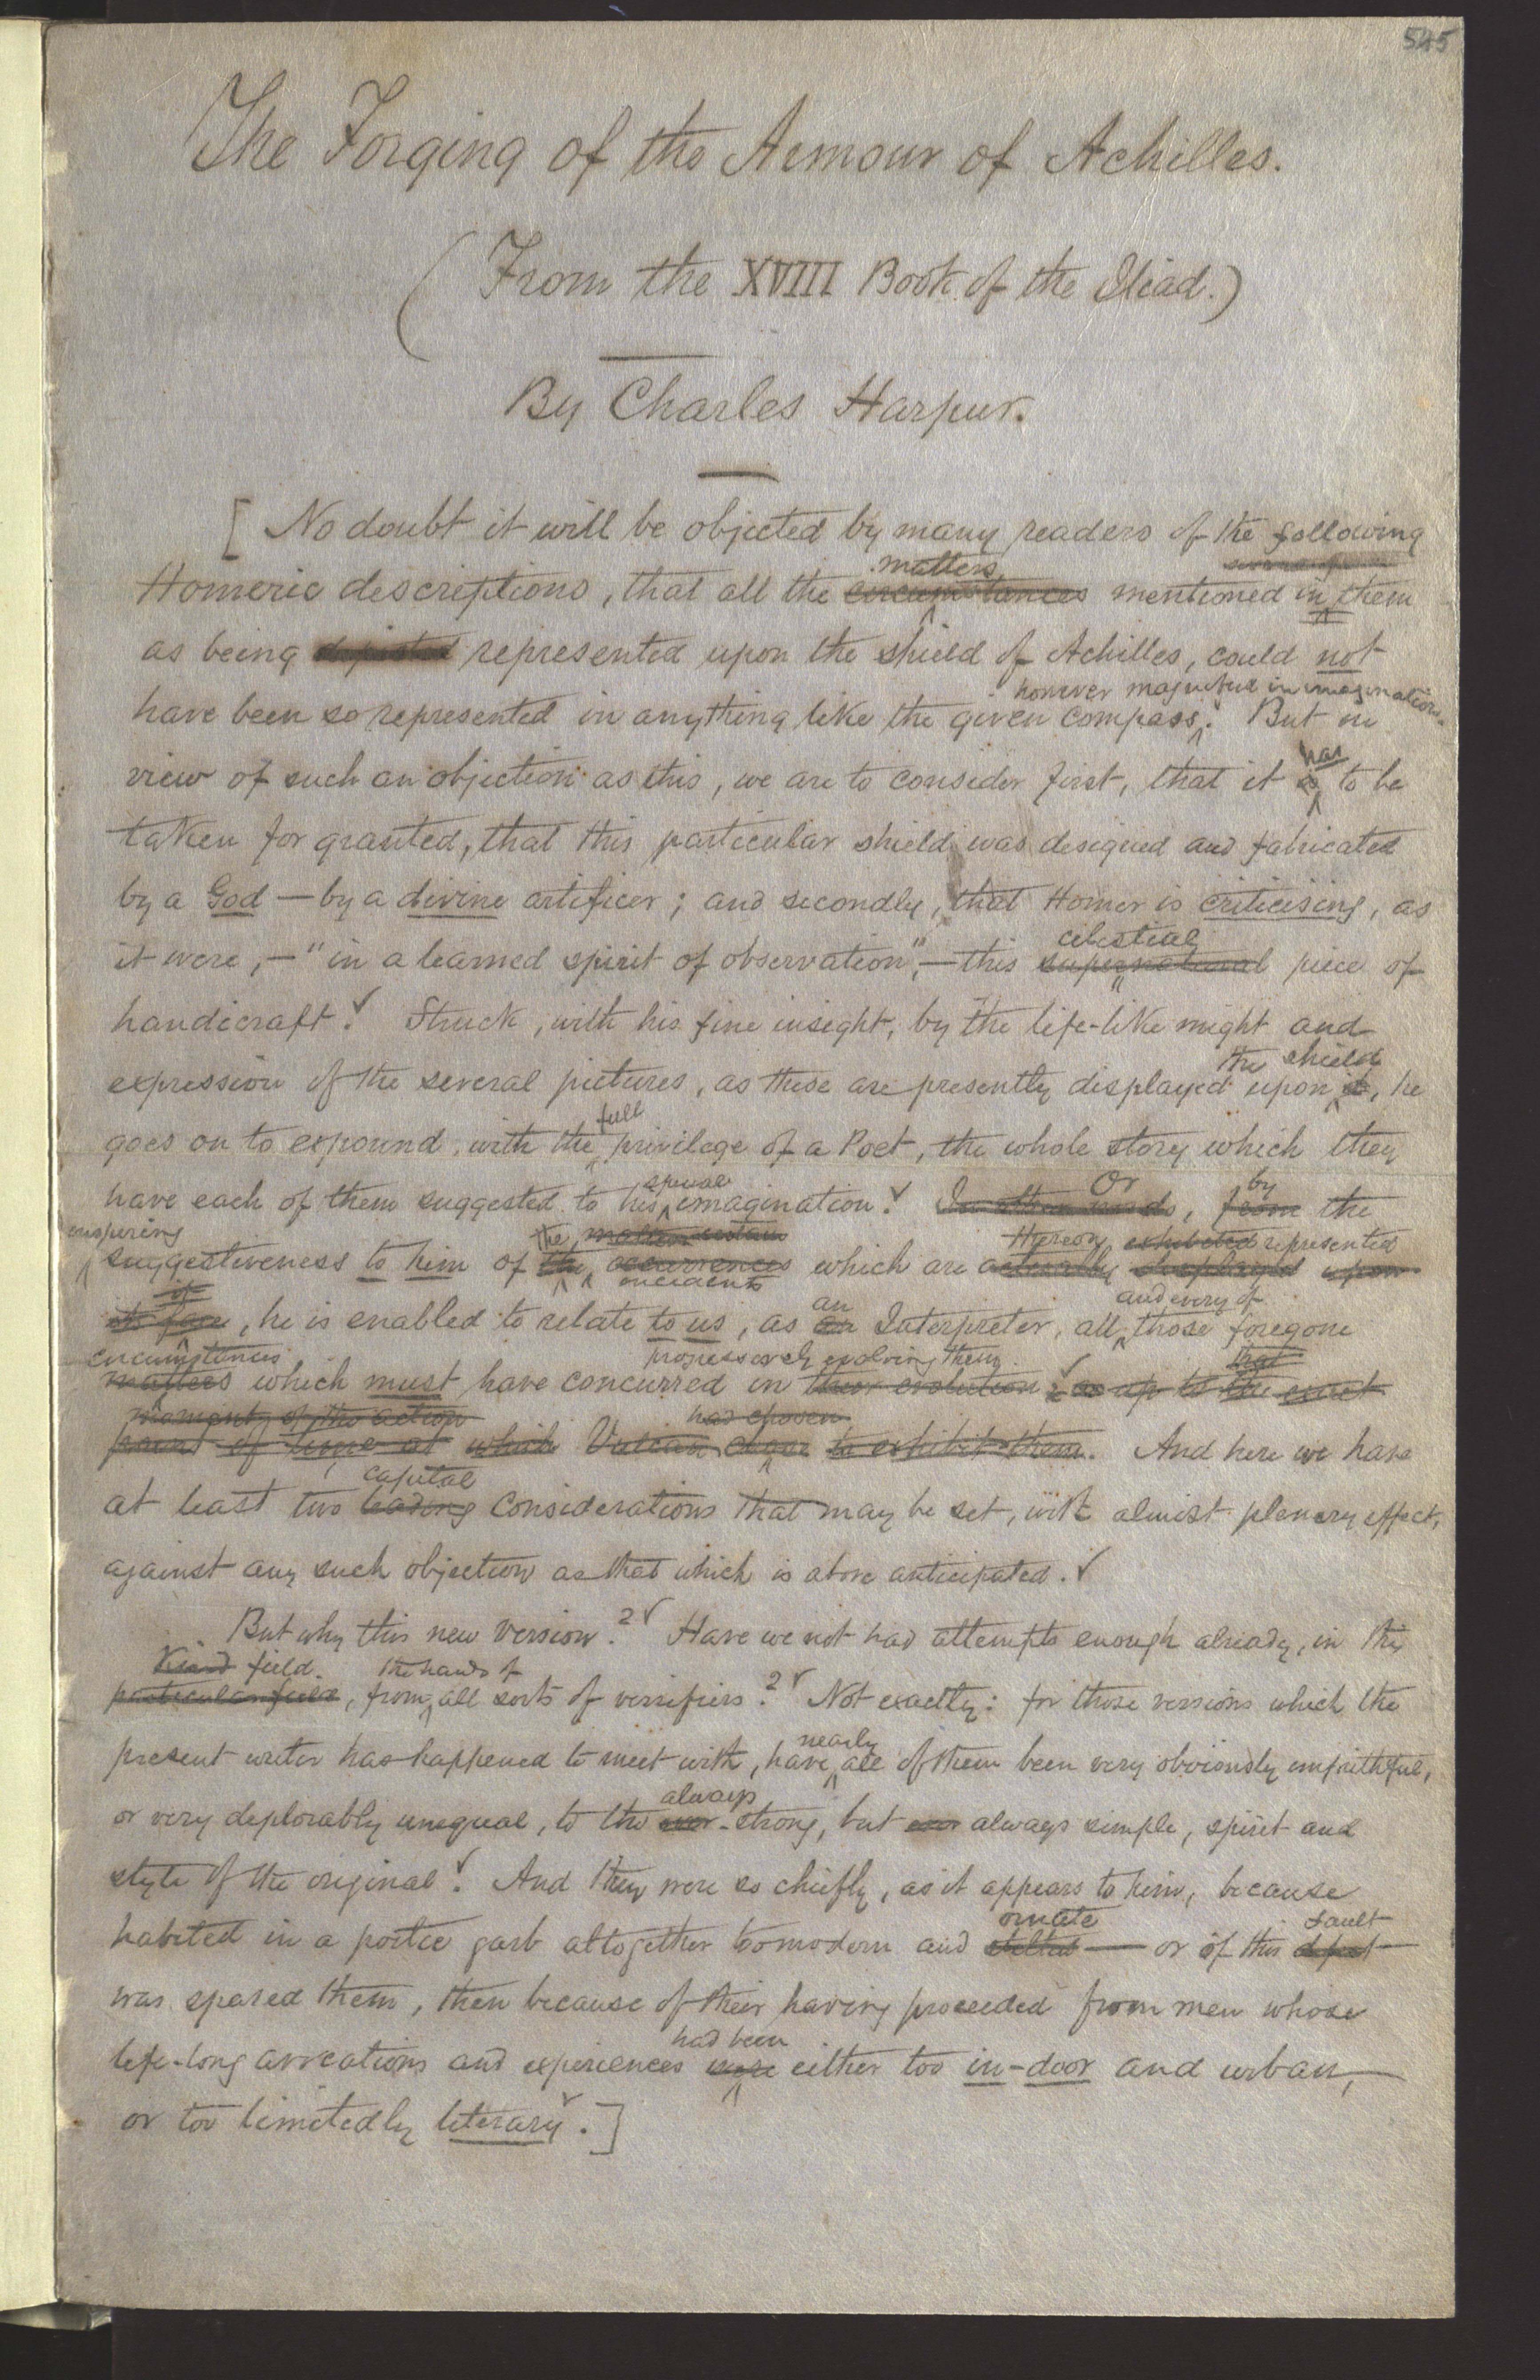 545
The Forging of the Armour of Achilles.
(From the XVIII Book of the Iliad.)
By Charles Harpur.
[No doubt it will be objected by many readers of the following
matters
Homeric descriptions, that all the circumstances mentioned in them
as being represented upon the shield of Achilles, could not
however magnified in imagination.
have been so represented in anything like the given compass. But in
has
view of such an objection as this, we are to consider first, that it is to be
taken for granted, that this particular shield was designed and fabricated
by a God — by a divine artificer; and secondly, that Homer is criticising, as
celestial
it were, — "in a learned spirit of observation", — this supernatural piece of
handicraft. Struck, with his fine insight, by the life-like might and
the shield
expression of the several pictures, as these are presently displayed upon it, he
full
goes on to expound, with the privilege of a Poet, the whole story which they
special Or by
have each of them suggested to his imagination. In other words, from the
inspiring the matters certain Thereon exhibited represented
suggestiveness to him of the occurrences which are actually displayed upon
incidents
it an and every of
its face, he is enabled to relate to us, as an Interpreter, all those foregone
circumstances progressively evolving them. that
matters which must have concurred in their evolution as up to the exact
moment of the action had chosen
point of time at which Vulcan chose to exhibit them. And here we have
capital
at least two leading considerations that may be set, with almost plenary effect,
against any such objection as that which is above anticipated.
But why this new version? Have we not had attempts enough already, in this
Kind field. the hands of
particular field, from all sorts of versifiers? Not exactly: for those versions which the
nearly
present writer has happened to meet with, have all of them been very obviously unfaithful,
always
or very deplorably unequal, to the ever-strong, but ever always simple, spirit and
style of the original. And they were so chiefly, as it appears to him, because
ornate fault
habited in a poetic garb altogether too modern and stilted — or if this defect
was spared them, then because of their having proceeded from men whose
had been
life-long avocations and experiences were either too in-door and urban,
or too limitedly literary.]